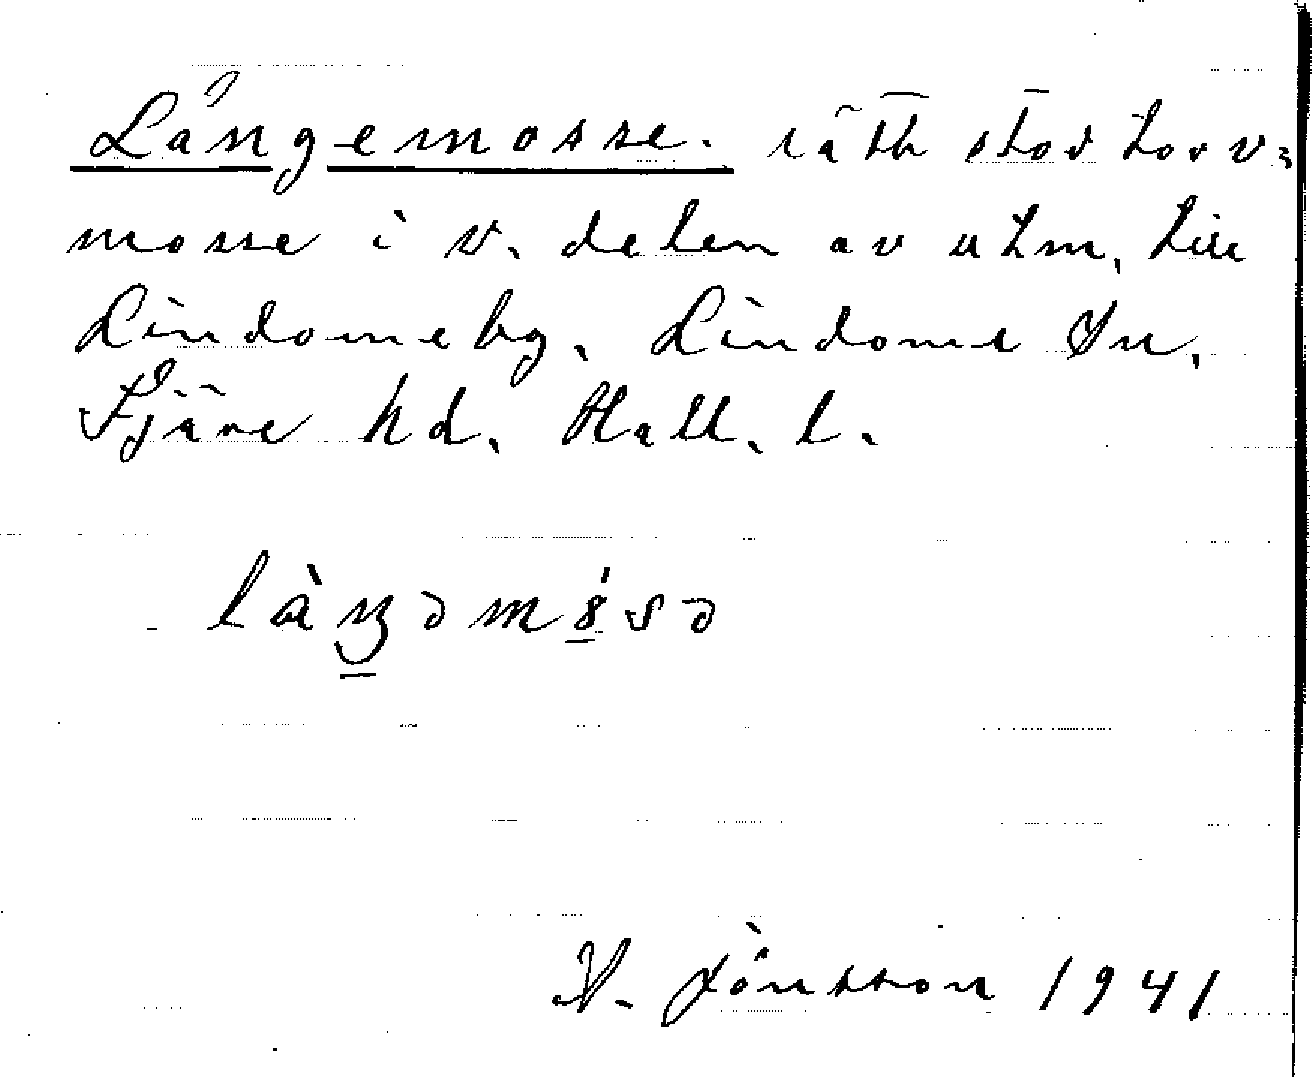 Långemosse. rätt stor torv-
mosse i v. delen av utm. till
Lindomeby. Lindome sn.
Fjäre hd. Hall. l.
V. Jönsson 1941